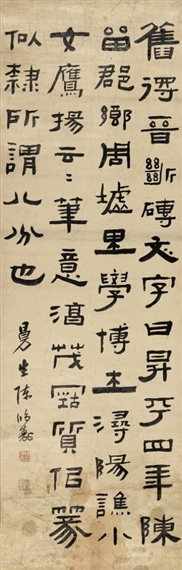 舊得晉斷磚文字曰昇平四年陳
留郡鄉周墟里學博士潯陽譙小
女鷹揚云二筆意高茂罡質侣篆
似隸所謂八分也
曼生陳鴻壽